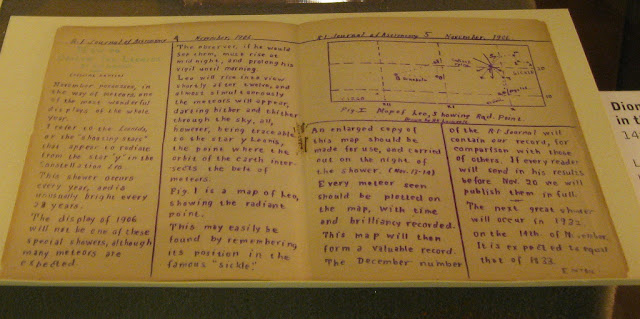 R.I. Journal of Astronomy 4 November, 1906
November possesses, in
the way of meteors one
of the most wonderful
displays of the whole
year.
I refer to the Leonids,
or the "shooting stars"
that appear to radiate
from the star "γ" in the
Constellation Leo
This shower occurs
every year, and is
unusually bright every
The display of 1906
will not be one of these
special showers, although
many meteors are
expected.
The observer, if he would
see them, must rise at
midnight, and prolong his
vigil until morning.
Leo will rise into view
shortly after twelve, and
almost simultaneously
the meteors will appear,
darting hither and thither
through the sky, all,
however, being traceable
to the star γ Leonis,
the point where the
orbit of the earth inter-
sects the belt of
meteors.
Fig. I is a map of Leo,
showing the radiant
point.
This may easily be
found by remembering
its position in the
famous "sickle."
R.I. Journal of Astronomy 5 November, 1906
Fig. I. Map of Leo, showing Rad. Point.
An enlarged copy of
this map should be
made for use, and carried
out on the night of
the shower. (Nov. 13-14)
Every meteor seen
should be plotted on
the map, with time
and brilliancy recorded.
This map will then
form a valuable record.
The December number
of the R.I. Journal will
contain our record, for
comparison with those
of others. If every reader
will send in his results
before Nov. 20 we will
publish them in full.
The next great shower
will occur in
on the 14th. of November.
It is expected to equal
that of 1833.
Dior
in th
14